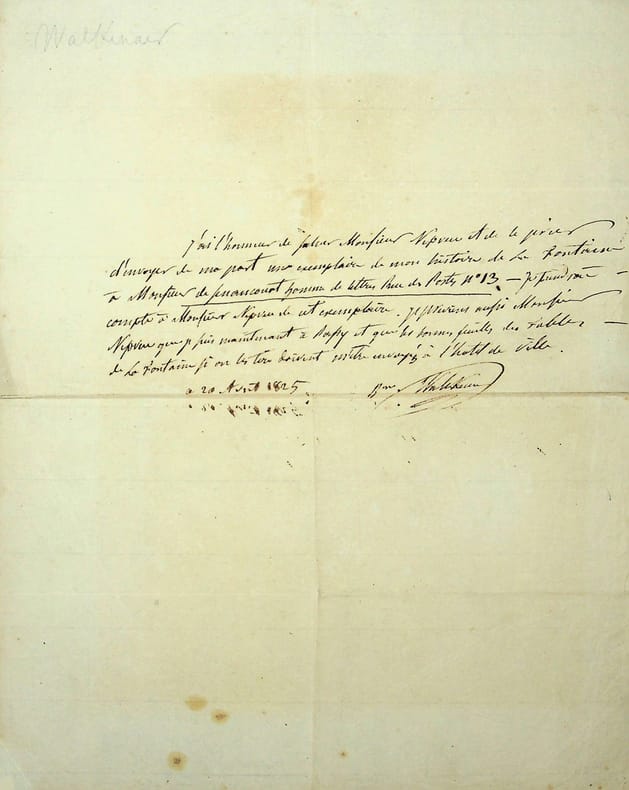 Walkenaer
J'ai l'honneur de saluer Monsieur Nepveu et de le prier
d'envoyer de ma part un exemplaire de mon histoire de La Fontaine
à Monsieur de Senancourt homme de lettres Rue des Postes n° 13. — Je tiendrai
compte à Monsieur Nepveu de cet exemplaire. Je préviens aussi Monsieur
Nepveu que je suis maintenant à et que les bonnes feuilles des fables
de La Fontaine si on les tire doivent m'être envoyées à l'hotel de Ville.
ce 20 1825 Bon Walckenaer